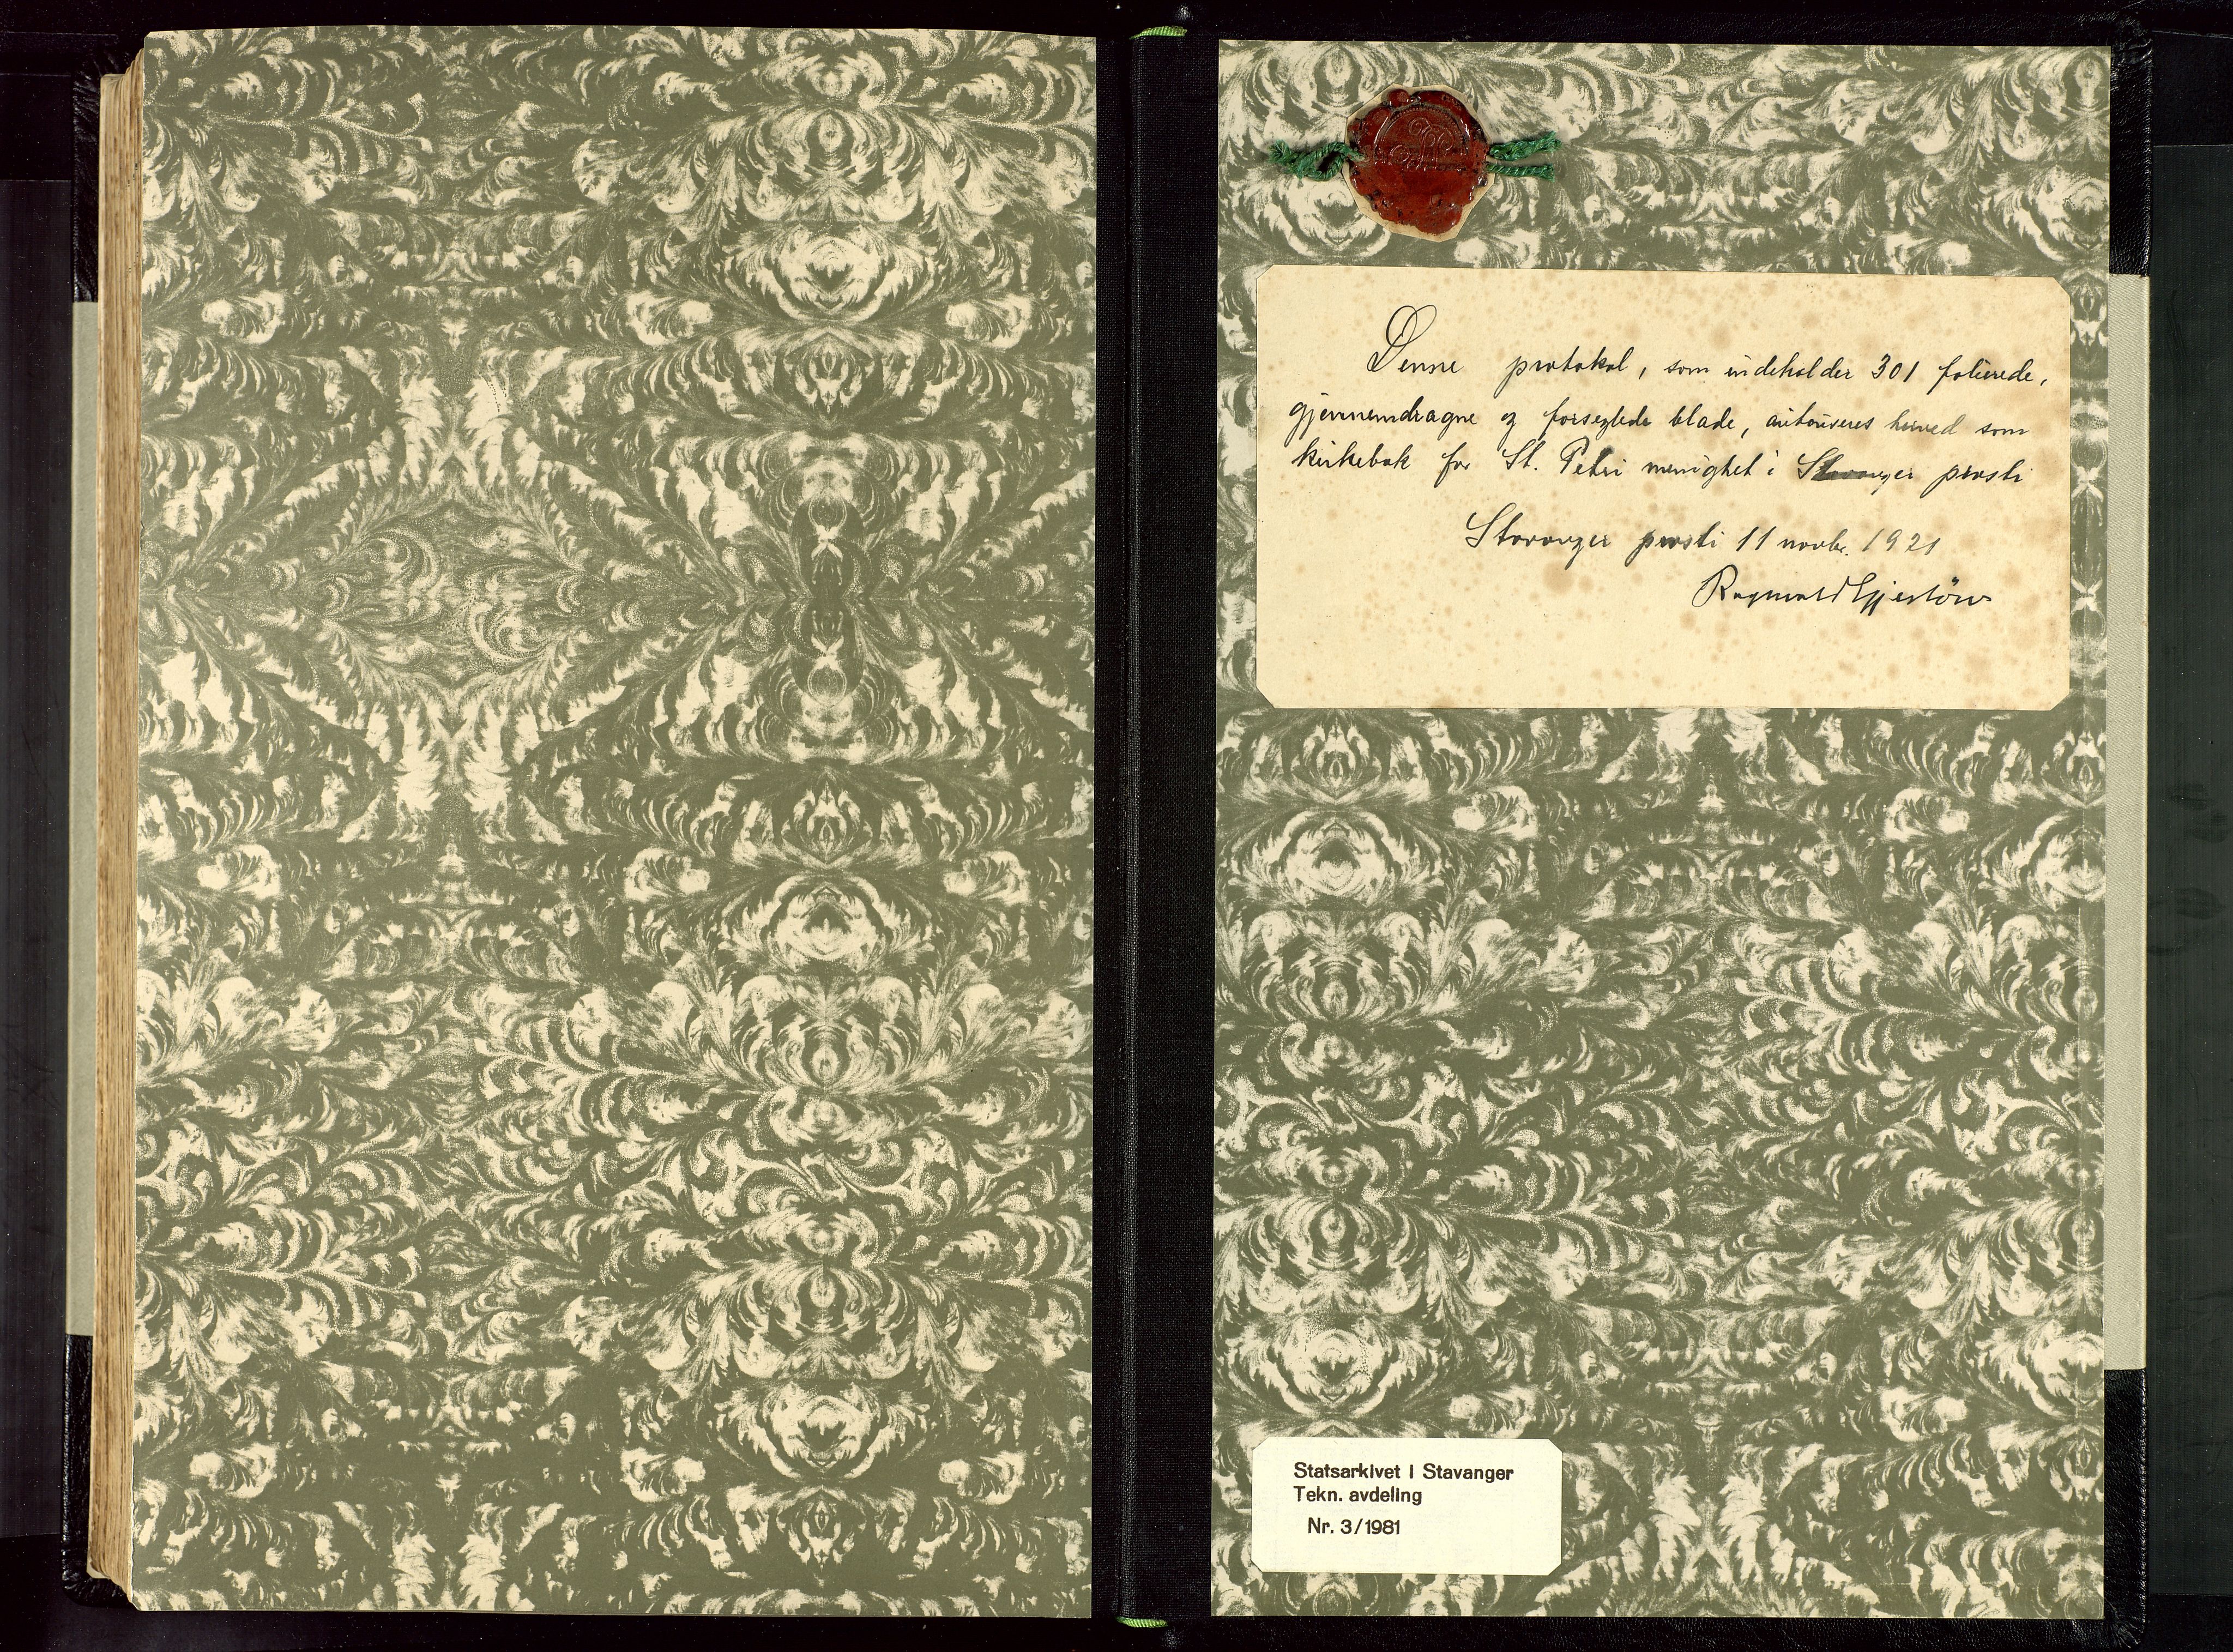 Denne protokol, som indeholder 301 folierede,
gjennemdragne og forseglede blade, autoriseres herved som
kirkebok for St. Petri menighet i Stavanger prosti
Stavanger prosti 11 novbr. 1921
Ragnvald Gjerløw
Statsarkivet i Stavanger
Tekn. avdeling
Nr. 3/1981